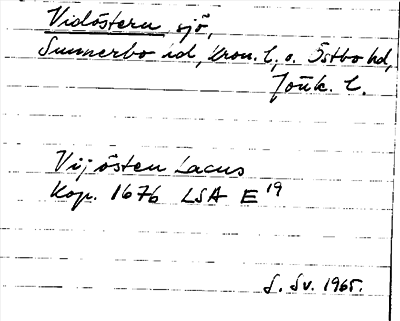 Vidöstern sjö,
Sunnerbo hd, Kron. l, o. Östbo hd,
Jönk. l.
Vijösten Lacus
Kop. 1676 LSA E 19
S. Sv. 1965.